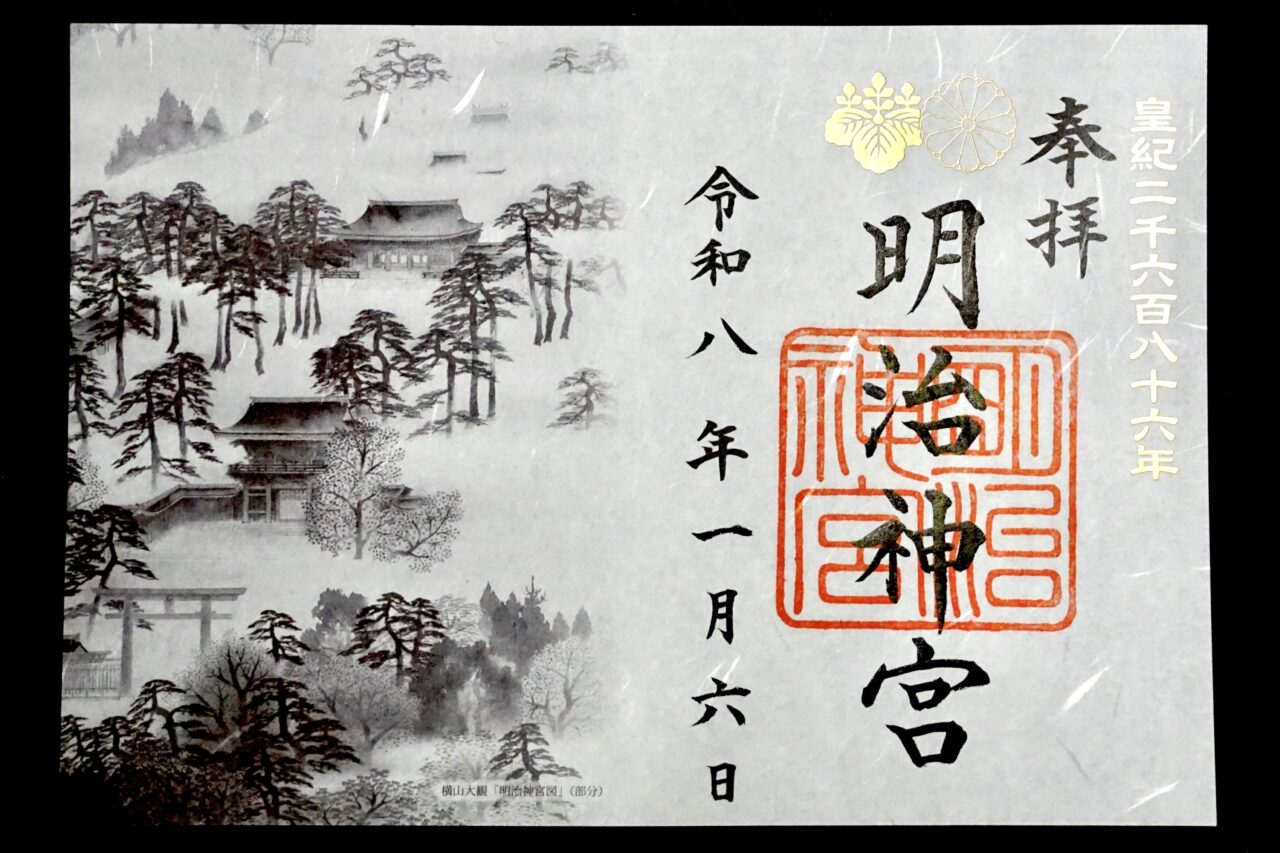 皇紀二千六百八十六年
奉拝
明治神宮
明治神宮
令和八年一月六日
横山大観「明治神宮図」(部分)